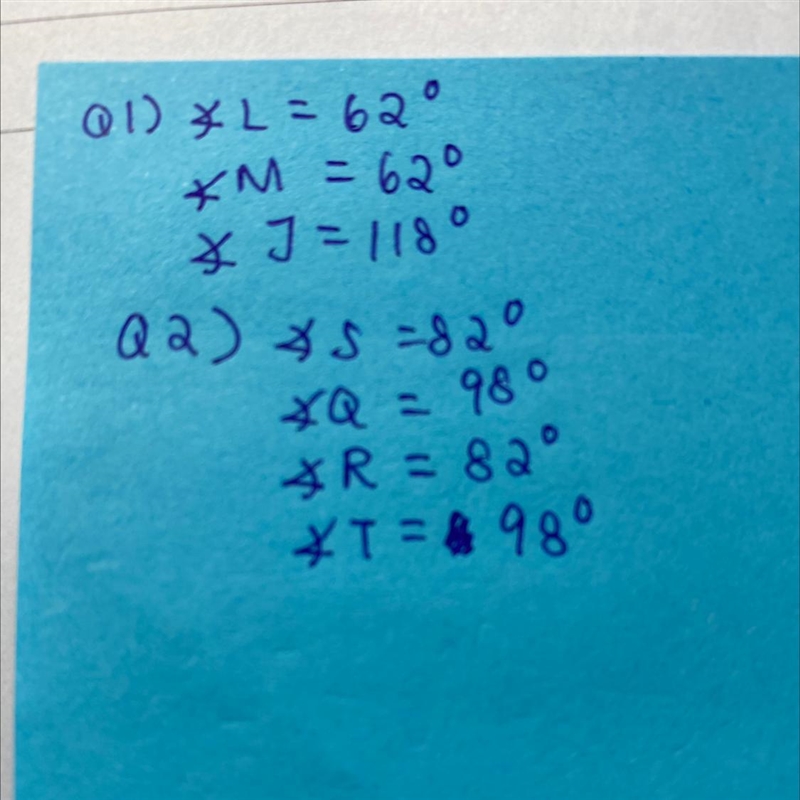 Q1) ∡L = 62°
∡M = 62°
∡J = 118°
Q2) ∡S = 82°
∡Q = 98°
∡R = 82°
∡T = 98°